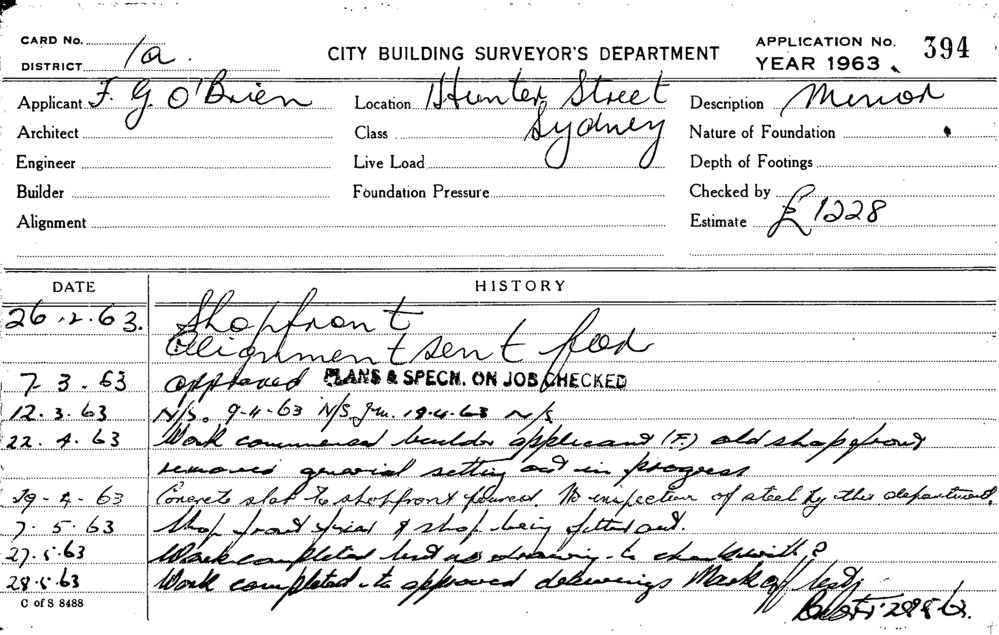 CARD No.
DISTRICT 1a.
CITY BUILDING SURVEYOR'S DEPARTMENT
APPLICATION No. 394
YEAR 1963
Applicant F. G. O'Brien
Location Hunter Street
Sydney
Description Minor
Architect
Class
Nature of Foundation
Engineer
Live Load
Depth of Footings
Builder
Foundation Pressure
Checked by
Alignment
Estimate £1228
DATE HISTORY
26.2.63. Shopfront
Alignment sent for
7.3.63 approved PLANS & SPECN. ON JOB CHECKED
12.3.63 N/S. 9-4-63 N/S 19.4.63 N/S
22.4.63 Work commenced builder applicant (F.) old shopfront
removed general setting out in progress
29-4-63 Concrete slab to shopfront poured. No inspection of steel by this department.
7.5.63 Shop front fixed & shop being fitted out.
27.5.63 Work completed but no drawing to check with?
28.5.63 Work completed to approved drawings Mark off
28.5.63.
C of S 8488